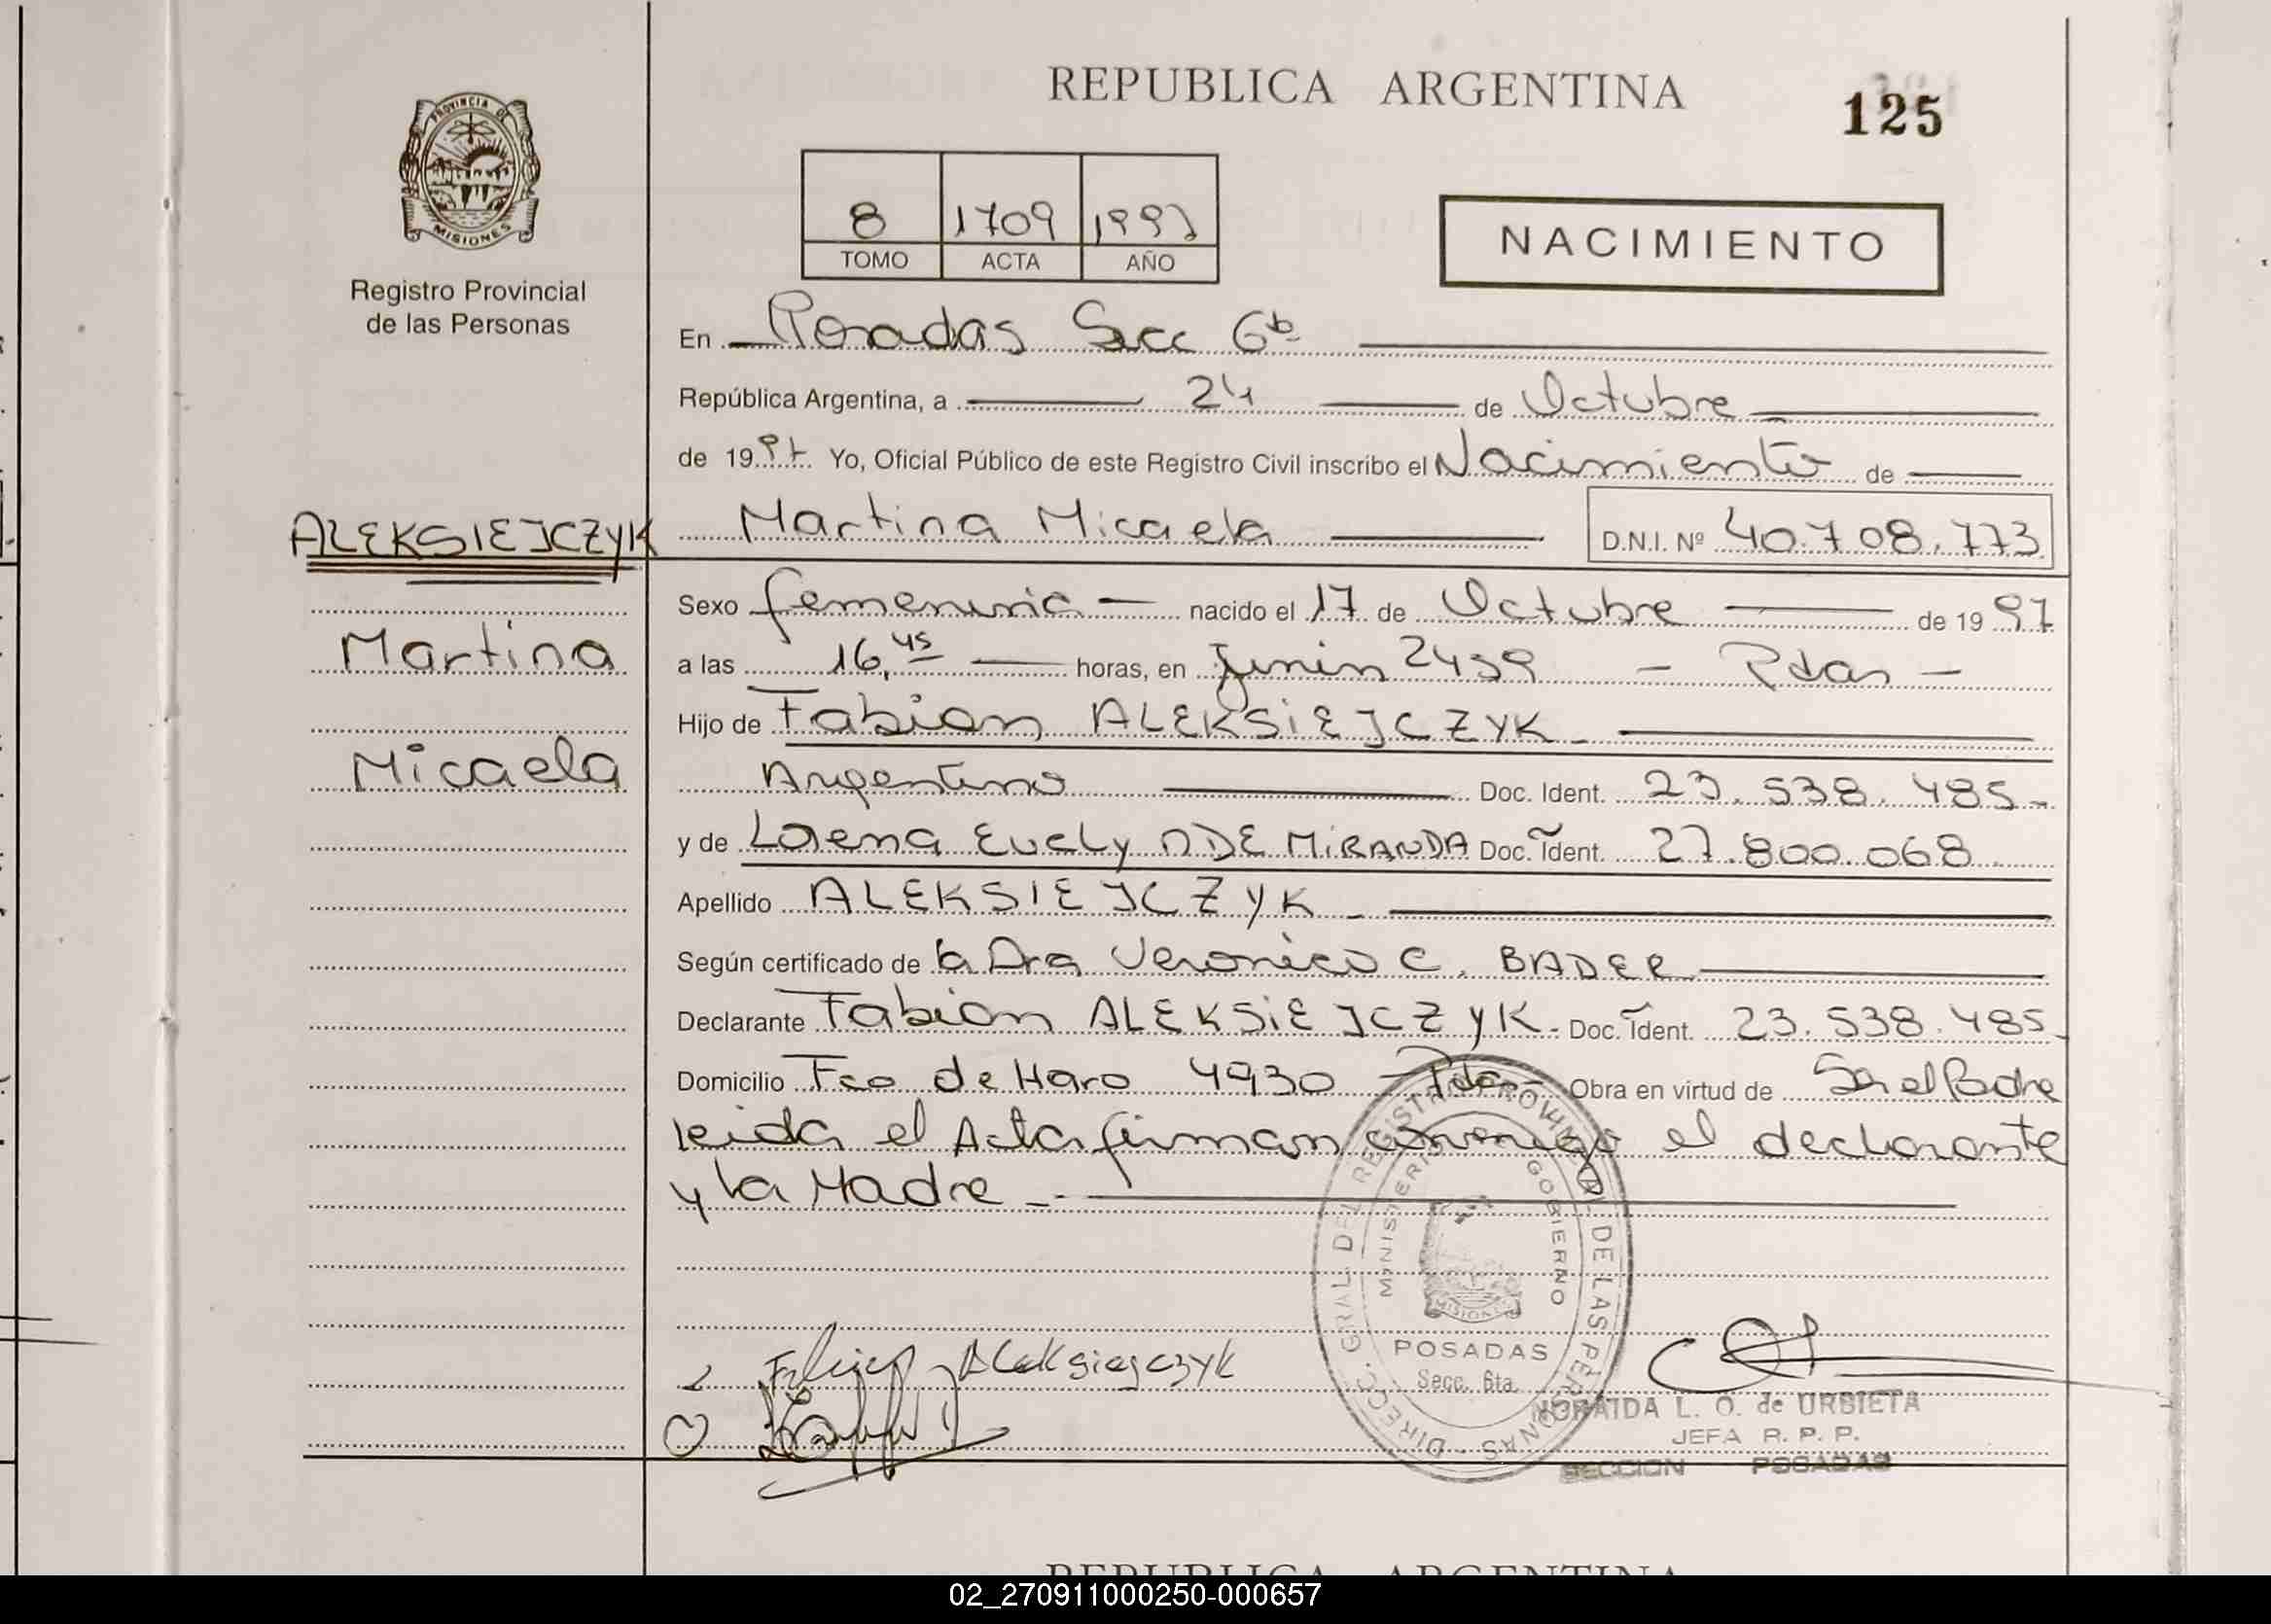 REPUBLICA ARGENTINA
125
PROVINCIA DE
MISIONES
Registro Provincial
de las Personas
8 1709 1997
TOMO ACTA AÑO
NACIMIENTO
En Posadas Secc 6ta
República Argentina, a 24 de Octubre
de 1997 Yo, Oficial Público de este Registro Civil inscribo el Nacimiento de
ALEKSIEJCZYK
Martina Micaela D.N.I. Nº 40.708.773
Sexo femenino nacido el 17 de Octubre de 1997
Martina
a las 16,45 horas, en Junin 2459 - Pdas -
Hijo de Fabian ALEKSiEJCZYK
Micaela
Argentino Doc. Ident. 23.538.485
y de Lorena Evely DE MiRANDA Doc. Ident. 27.800.068
Apellido ALEKSIEJCZYK
Según certificado de la Dra Veronica C. BADER
Declarante Fabian ALEKSiEJCZYK - Doc. Ident. 23.538.485
Domicilio Fco de Haro 4930 - Pdas - Obra en virtud de Ser el Padre
leida el Acta firman conmigo el declarante
y la Madre
DIRECC. GRAL. DEL REGISTRO PROVINCIAL DE LAS PERSONAS
MINISTERIO GOBIERNO
MISIONES
POSADAS
Secc. 6ta.
Aleksiejczyk
NORAIDA L. O. de URBIETA
JEFA R. P. P.
SECCION POSADAS
REPUBLICA ARGENTINA
02_270911000250-000657